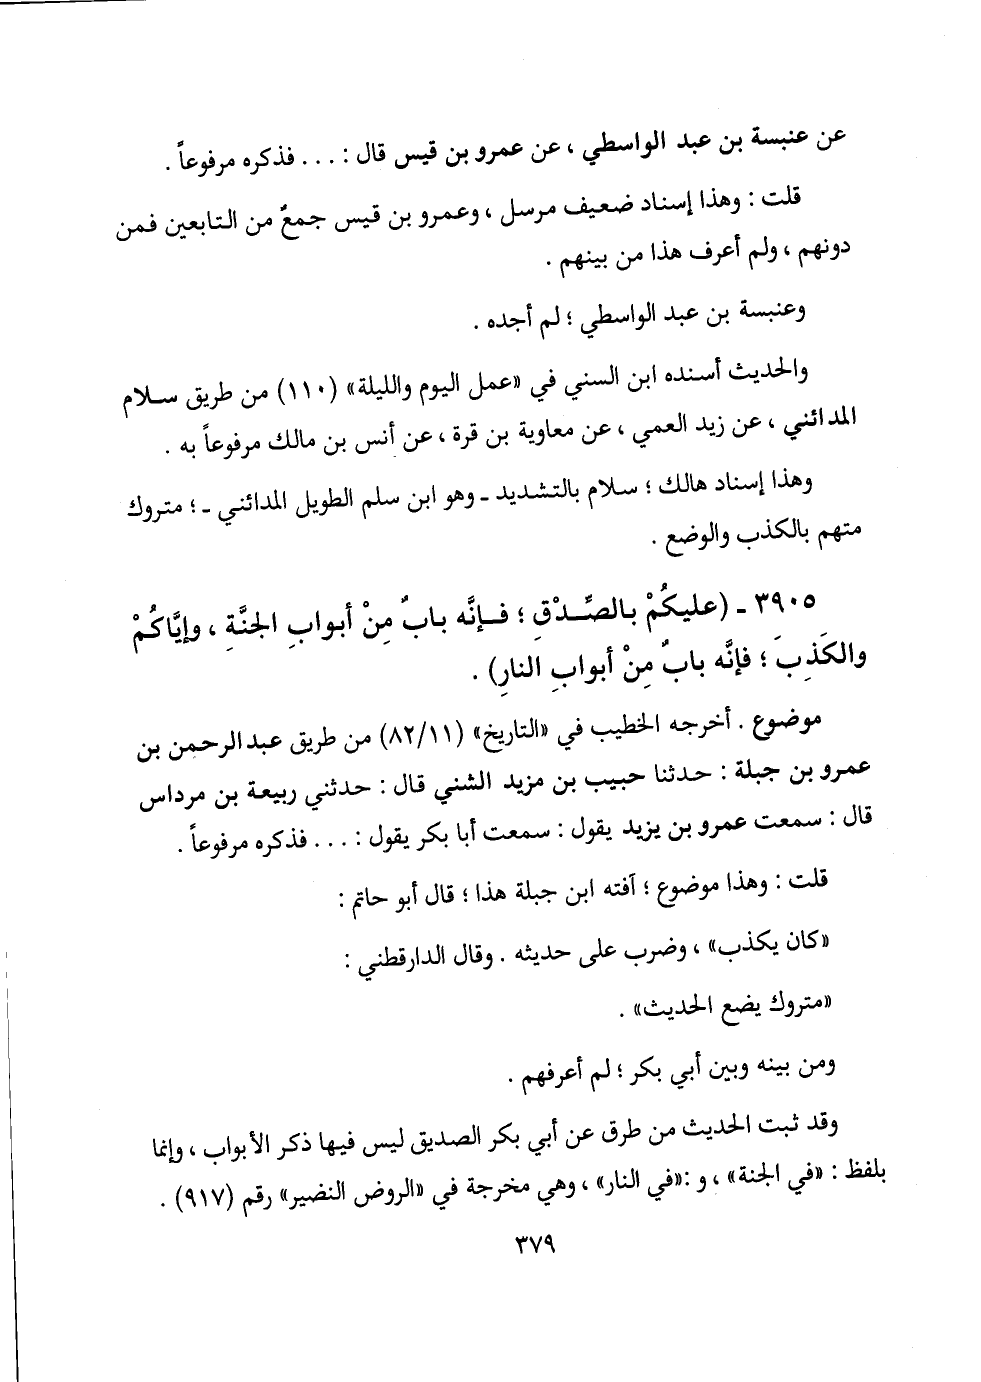 عن عنبسة بن عبد الواسطي ، عن عمرو بن قيس قال : . . . فذكره مرفوعاً .
قلت : وهذا إسناد ضعيف مرسل ، وعمرو بن قيس جمعٌ من التابعين فمن
دونهم ، ولم أعرف هذا من بينهم .
وعنبسة بن عبد الواسطي ؛ لم أجده .
والحديث أسنده ابن السني في «عمل اليوم والليلة» (١١٠) من طريق سلام
المدائني ، عن زيد العمي ، عن معاوية بن قرة ، عن أنس بن مالك مرفوعاً به .
وهذا إسناد هالك ؛ سلام بالتشديد ـ وهو ابن سلم الطويل المدائني ـ ؛ متروك
متهم بالكذب والوضع .
٣٩٠٥ ـ (عليكُمْ بالصِّدْقِ ؛ فإنَّه بابٌ مِنْ أبوابِ الجنَّةِ ، وإيَّاكُمْ
والكَذِبَ ؛ فإنَّه بابٌ مِنْ أبوابِ النارِ) .
موضوع . أخرجه الخطيب في «التاريخ» (٨٢/١١) من طريق عبد الرحمن بن
عمرو بن جبلة : حدثنا حبيب بن مزيد الشني قال : حدثني ربيعة بن مرداس
قال : سمعت عمرو بن يزيد يقول : سمعت أبا بكر يقول : . . . فذكره مرفوعاً .
قلت : وهذا موضوع ؛ آفته ابن جبلة هذا ؛ قال أبو حاتم :
«كان يكذب» ، وضرب على حديثه . وقال الدارقطني :
«متروك يضع الحديث» .
ومن بينه وبين أبي بكر ؛ لم أعرفهم .
وقد ثبت الحديث من طرق عن أبي بكر الصديق ليس فيها ذكر الأبواب ، وإنما
بلفظ : «في الجنة» ، و :«في النار» ، وهي مخرجة في «الروض النضير» رقم (٩١٧) .
٣٧٩